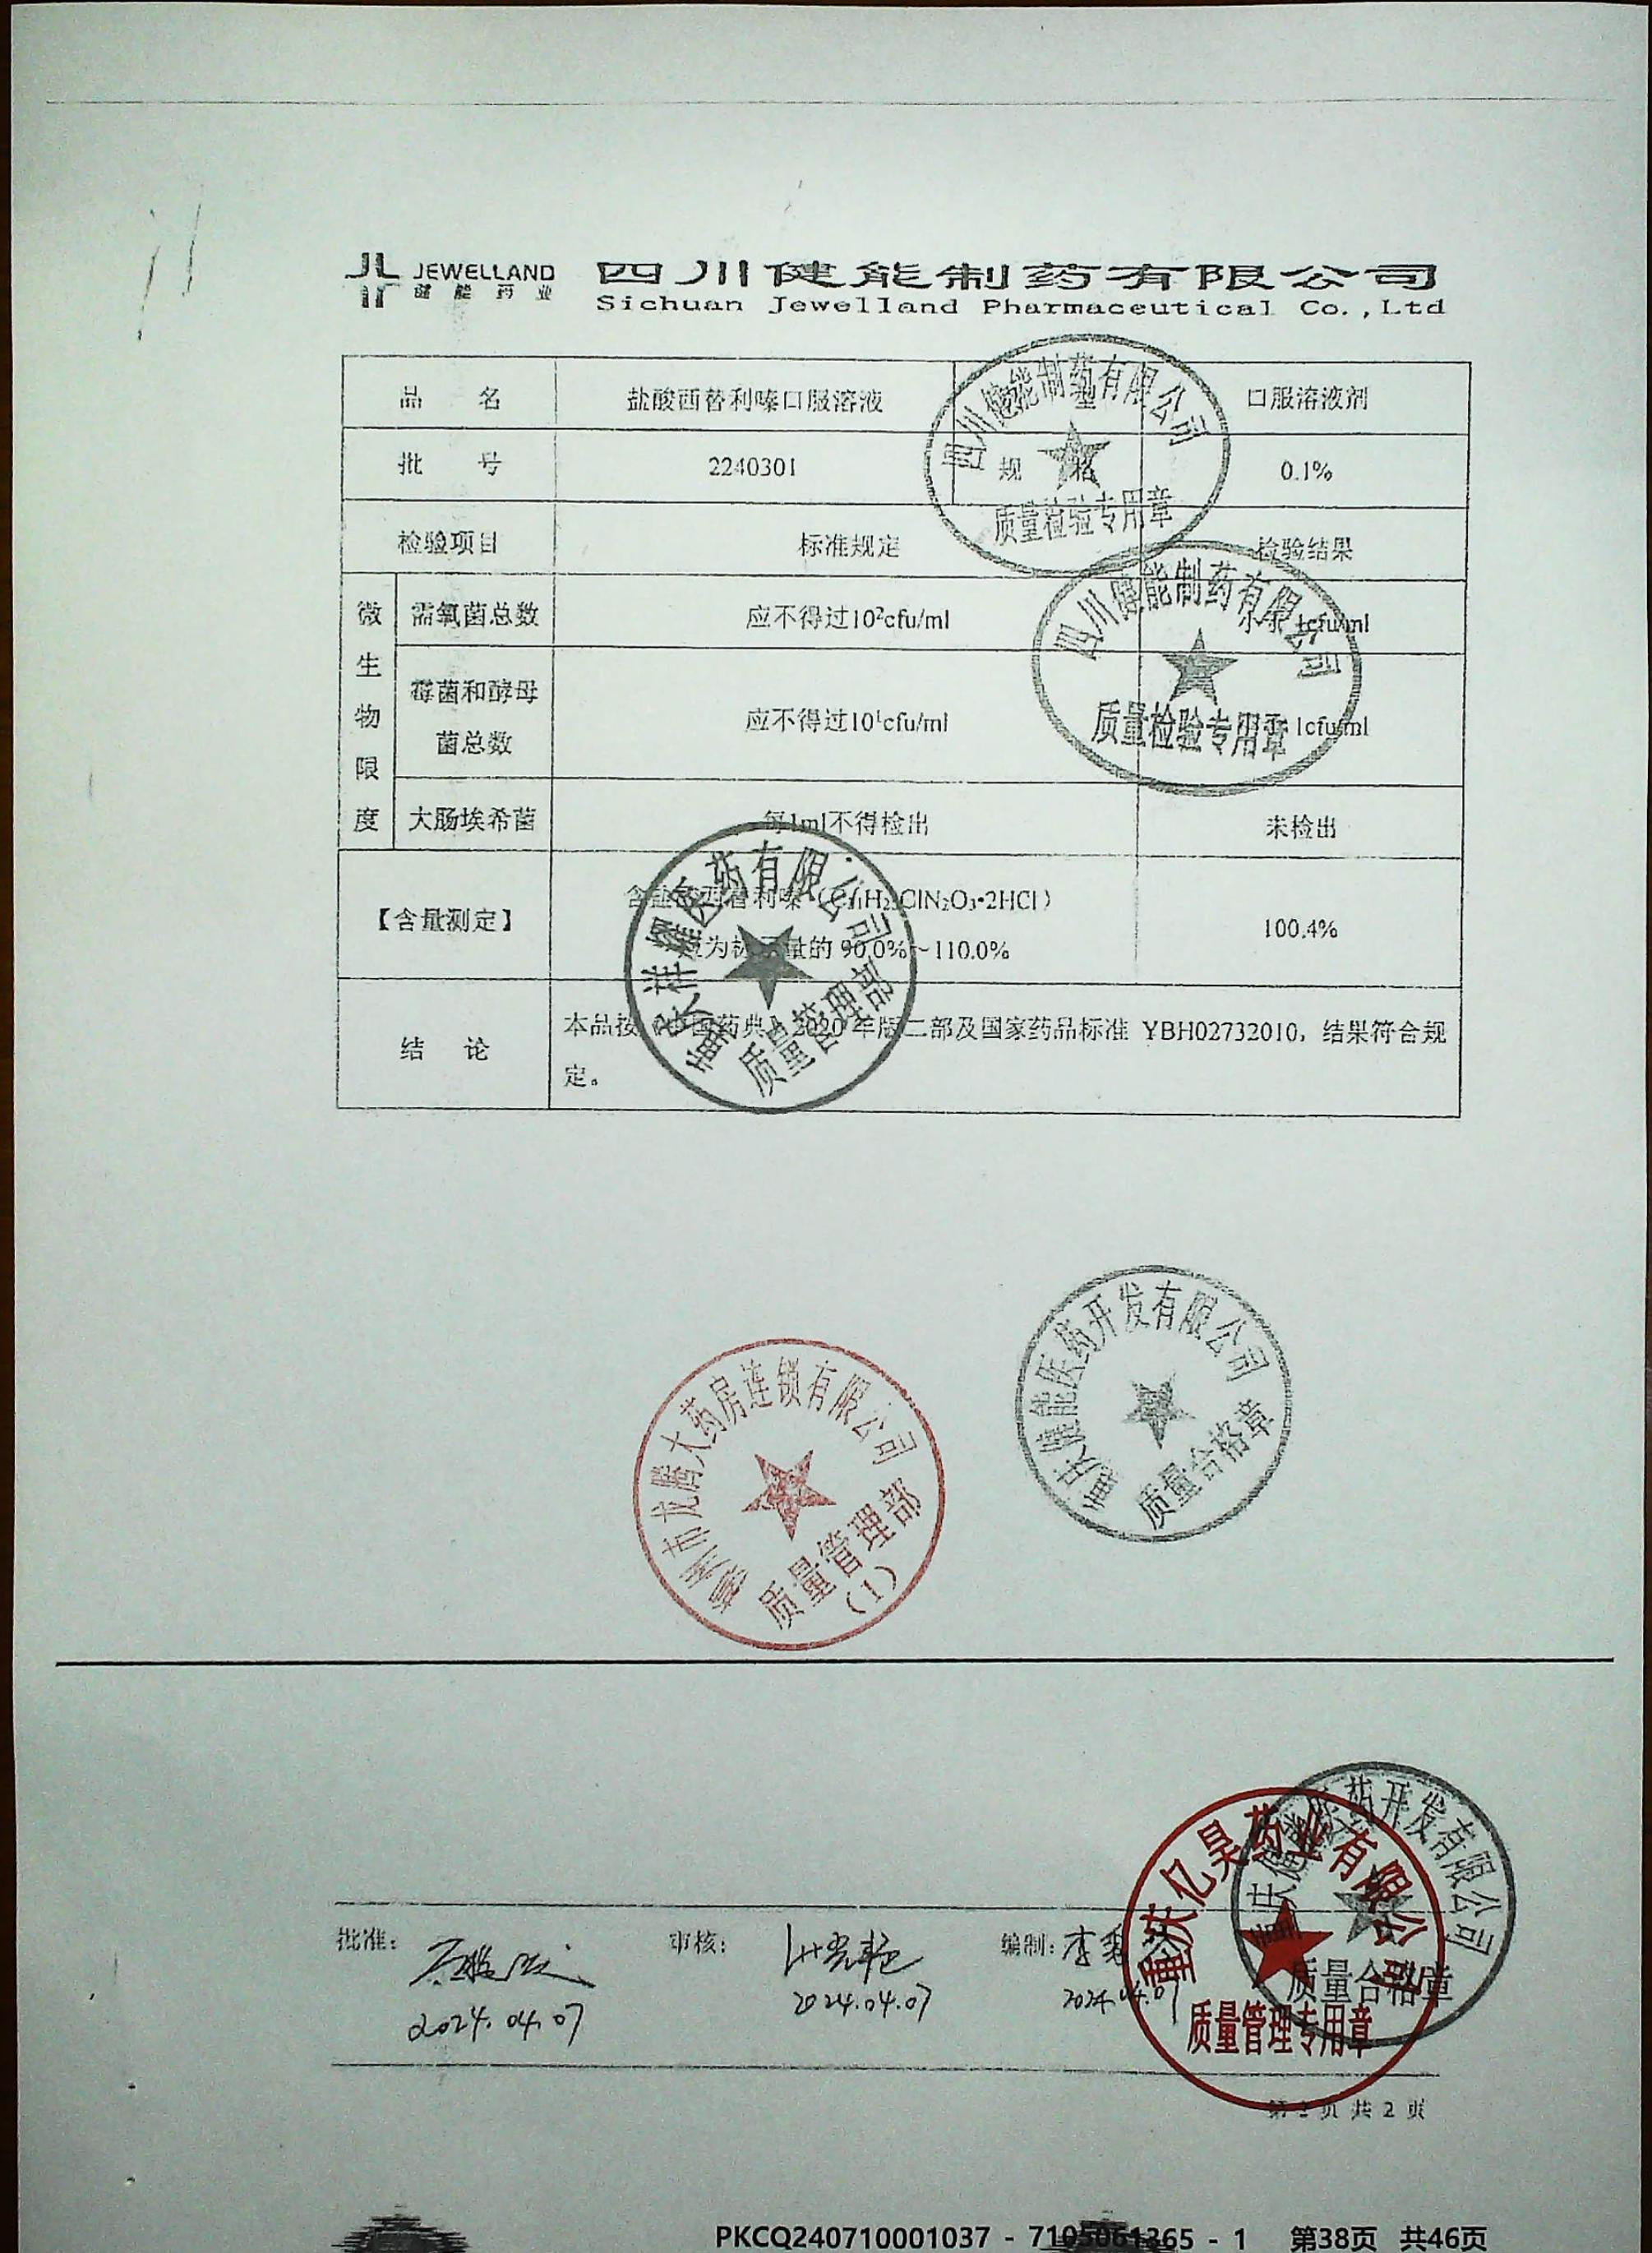 JEWELLAND
健能药业
四川健能制药有限公司
Sichuan Jewelland Pharmaceutical Co.,Ltd
品 名 盐酸西替利嗪口服溶液 型 口服溶液剂
批 号 2240301 规 格 0.1%
检验项目 标准规定 检验结果
微生物限度
需氧菌总数 应不得过10²cfu/ml 1cfu/ml
霉菌和酵母菌总数 应不得过10¹cfu/ml 1cfu/ml
大肠埃希菌 每1ml不得检出 未检出
【含量测定】 含盐酸西替利嗪（C₂₁H₂₅ClN₂O₃•2HCl） 100.4%
应为标示量的 90.0%～110.0%
结 论 本品按《中国药典》2020 年版二部及国家药品标准 YBH02732010，结果符合规
定。
四川健能制药有限公司
质量检验专用章
四川健能制药有限公司
质量检验专用章
医药有限公司
质量管理部
重庆健能医药开发有限公司
质量合格章
市龙腾大药房连锁有限公司
质量管理部
（1）
重庆健能医药开发有限公司
质量合格章
重庆亿昊药业有限公司
质量管理专用章
批准：
2024.04.07
审核：
2024.04.07
编制：李
2024.04.07
第 2 页 共 2 页
PKCQ240710001037 - 7105061365 - 1 第38页 共46页